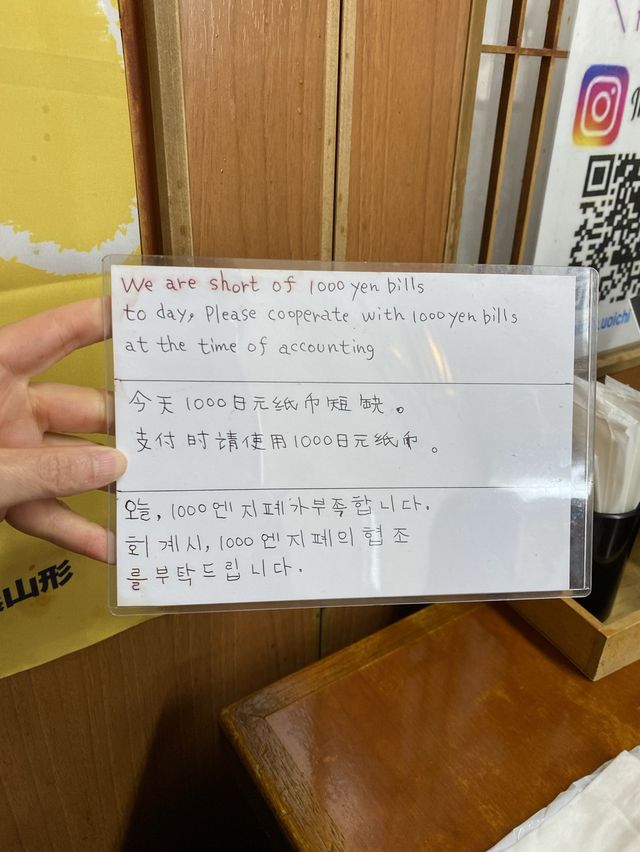 We are short of 1000 yen bills
to day, Please cooperate with 1000 yen bills
at the time of accounting
今天1000日元纸币短缺。
支付时請使用1000日元纸币。
오늘, 1000엔 지폐가 부족합니다.
회계시, 1000엔 지폐의 협조
를 부탁드립니다.
山形
uoichi